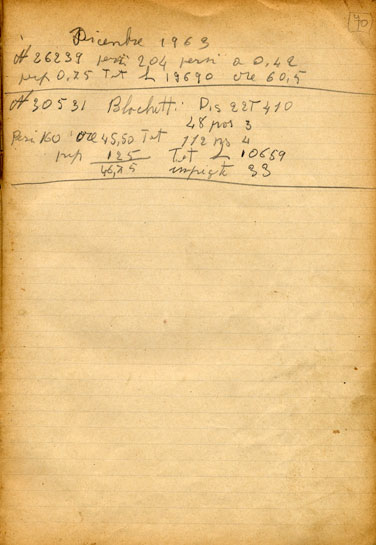 70
Dicembre 1963
N 26239 pezzi 204 persi a 0,42
prep 0,75 Tot L 19690 ore 60,5
N 30531 Blochetti Dis 22T410
48 pos 3
Pezi 160 ore 45,50 Tot 112 pos 4
prep 1,25 Tot L 10659
46,75 impiegate 33